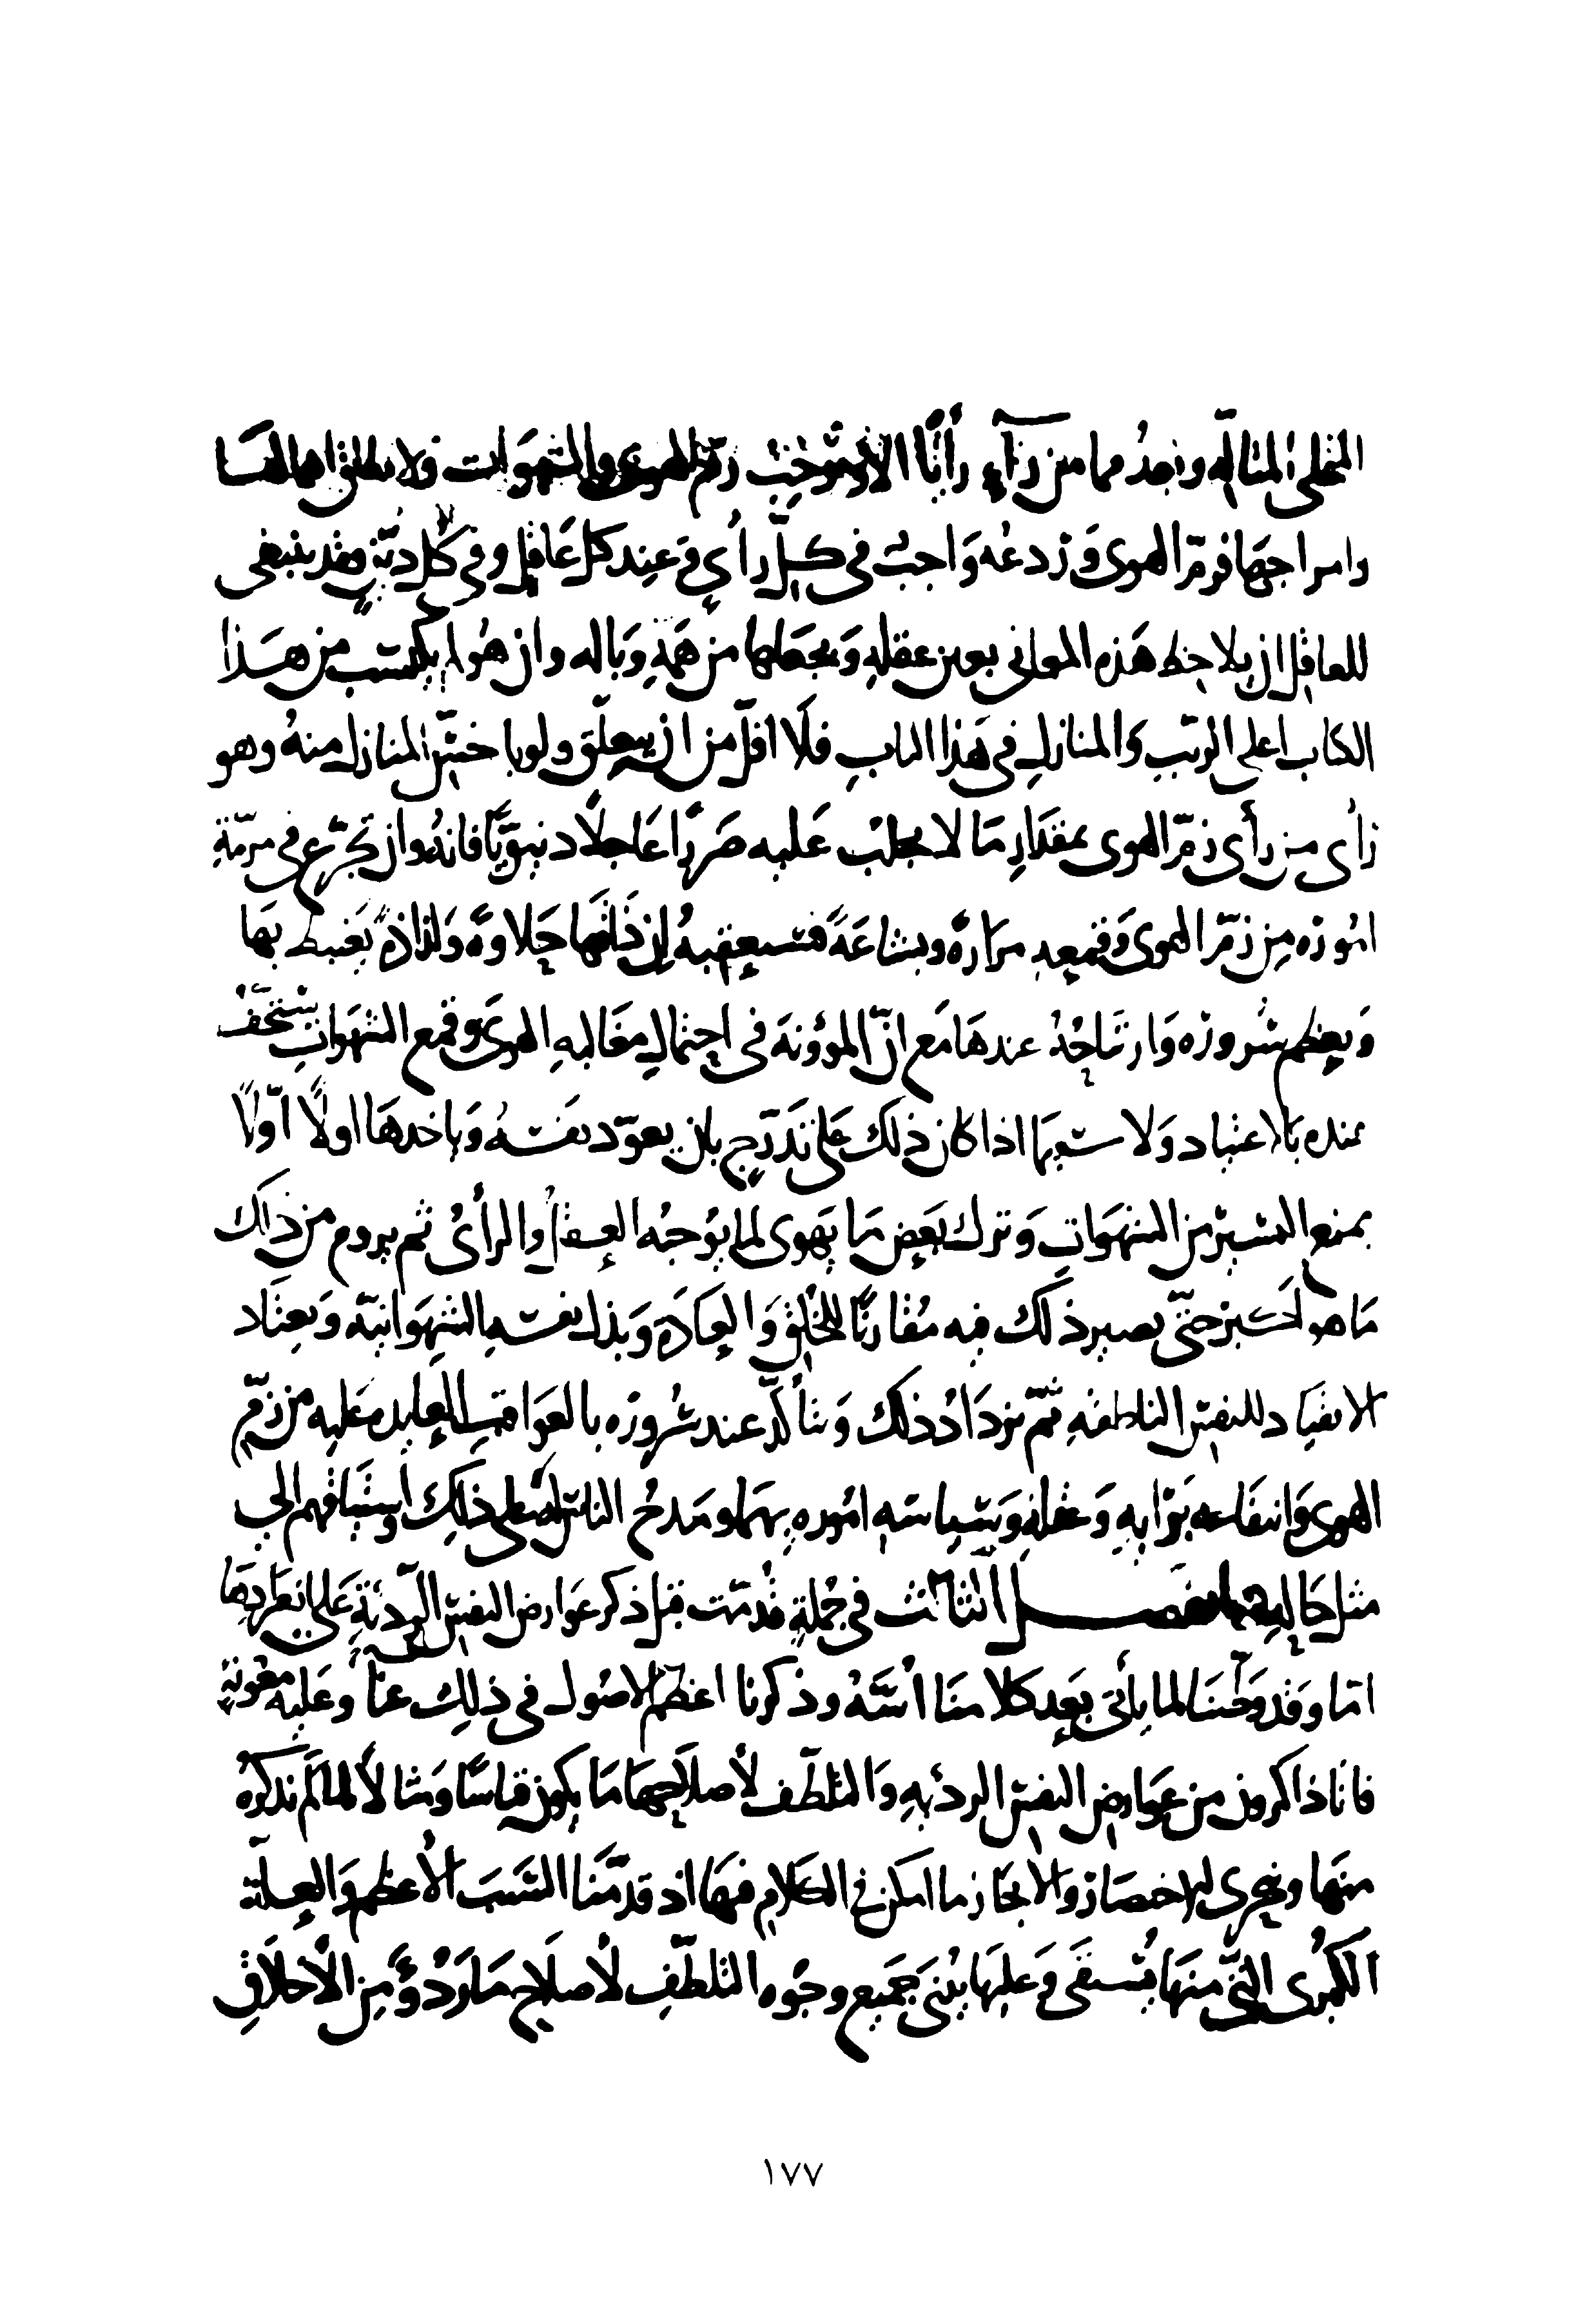 المخلى المتأله وبعد فما من رأي رأيًا الا وتوجب زم الهوى والشهوات ولا يطلق اهمالها
وامراجها فزمّ الهوى وردعه واجب في كلّ رأي وعند كل عاقل وفي كل دين فقد ينبغي
للعاقل ان يلاحظ هذه المعاني بعين عقله ويجعلها من همّه وباله وان هو لم يكتسب من هذا
الكتاب اعلى الرتب والمنازل في هذا الباب فلا اقلّ من ان يتعلّق ولو باخسّ المنازل منه وهو
رأي من رأى زمّ الهوى بمقدار ما لا يجلب عليه ضررًا عاجلًا دنيويًّا فانه وان تجرّع في مرمّة
اموره من زمّ الهوى وقمعه مرارةً وبشاعةً فستعقبه ان ذلتها حلاوةً ولذاذةً يغبط بها
ويعظم سروره وارتياحه عندها مع انّ المؤونة في احتمال مغالبه الهوى وقمع الشهوات يستخفّ
عنده بالاعتياد ولا سيما اذا كان ذلك على تدرّج بان يعوّد نفسه وياخذها اولًا اولًا
بمنع اليسير من الشهوات وترك بعض ما يهوى لما يوجبه العقل والرأي ثم يروم من ذلك
ما هو اكبر حتّى يصير ذلك فيه مقارنًا للخلق والعادة وبذل نفسه الشهوانيّة ويعتاد
الانقياد للنفس الناطقه ثمّ يزداد ذلك ويتأكّد عند سروره بالعواقب العايده عليه من زمّ
الهوى وانتفاعه برأيه وعقله وبسياسه اموره بهما ومدح الناس له على ذلك واستباقهم الى
مثل حاله فيها الفصل الثالث في جملةٍ قدّمت قبل ذكر عوارض النفس الردئة على انفرادها
امّا وقد وطّنا لما يأتي بعد كلامنا اسّه وذكرنا اعظم الاصول في ذلك عنا وعليه معونة
فانا ذاكرون من عوارض النفس الردئه والتلطّف لاصلاحها ما يكون قياسًا ومثالًا لما لم نذكره
منها ونتحرى الاختصار والايجاز ما امكن في الكلام فيها اذ قدّمنا السبب الأعظم والعلّة
الكبرى التي منها يستقى وعليها يبنى جميع وجوه التلطّف لأصلاح ما ردؤ من الأخلاق
١٧٧